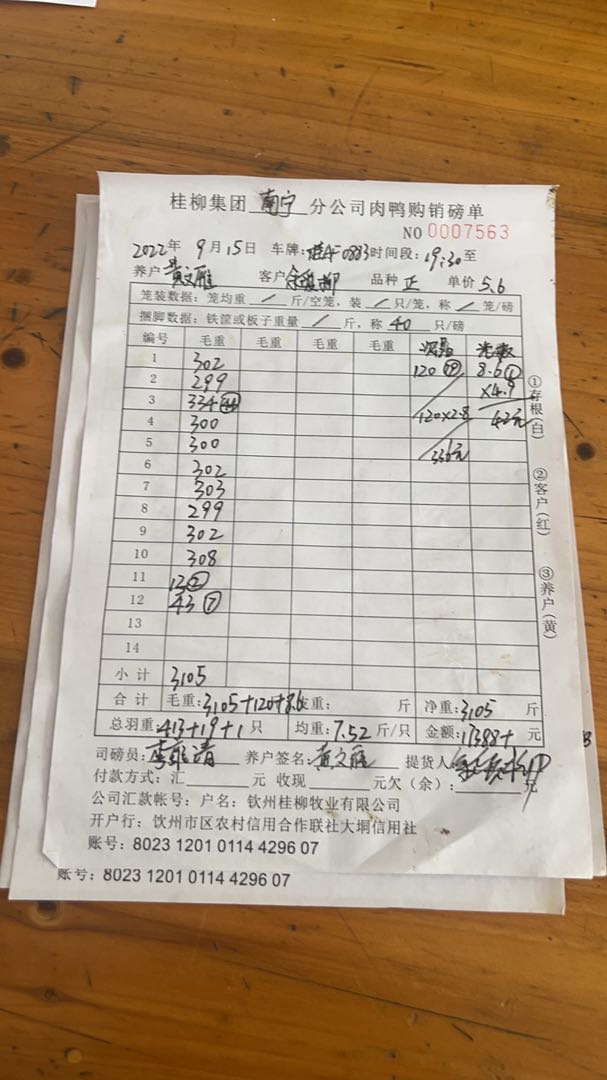 桂柳集团 南宁 分公司肉鸭购销磅单
NO 0007563
2022年 9月15日 车牌:桂AF0883 时间段:19:30至
养户 黄文雁 客户 品种 正 单价 5.6
笼装数据:笼均重 / 斤/空笼,装 / 只/笼,称 / 笼/磅
捆脚数据:铁筐或板子重量 / 斤,称 40 只/磅
编号 毛重 毛重 毛重 毛重
1 302 120 ⑲ 8.6①
2 299 ×4.9
3 334 120×2.8 42元
4 300
5 300 336元
6 302
7 303
8 299
9 302
10 308
11 13②
12 43⑦
13
14
小计 3105
合计 毛重:3105+120+8.6 皮重: 斤 净重:3105 斤
总羽重:413+19+1 只 均重:7.52 斤/只 金额:17388+ 元
司磅员: 养户签名:黄文雁 提货人:
付款方式:汇 元 收现 元欠(余): 元
公司汇款帐号:户名:钦州桂柳牧业有限公司
开户行:钦州市区农村信用合作联社大垌信用社
账号:8023 1201 0114 4296 07
账号:8023 1201 0114 4296 07
①存根(白)
②客户(红)
③养户(黄)